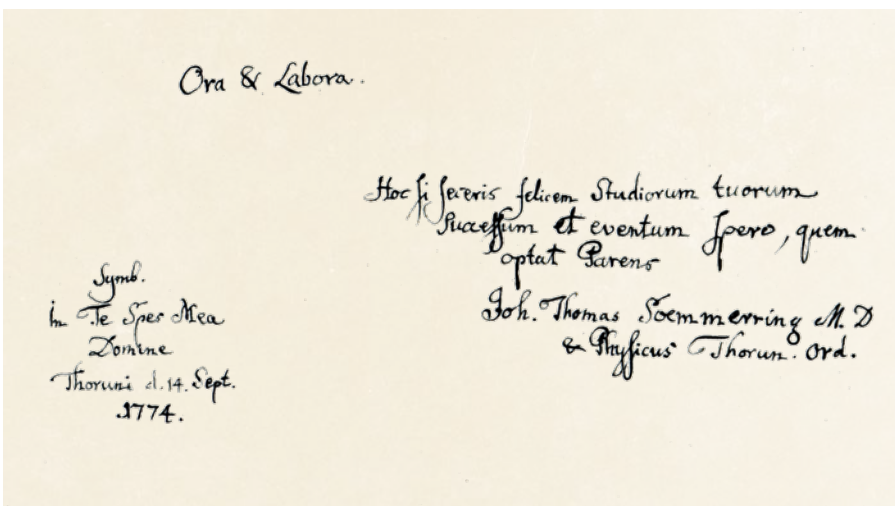 Ora & Labora.
Hoc si feceris felicem Studiorum tuorum
Successum et eventum spero, quem
optat Parens
Joh. Thomas Soemmerring M. D
& Physicus Thorun. ord.
Symb.
In Te Spes Mea
Domine
Thoruni d. 14. Sept.
1774.